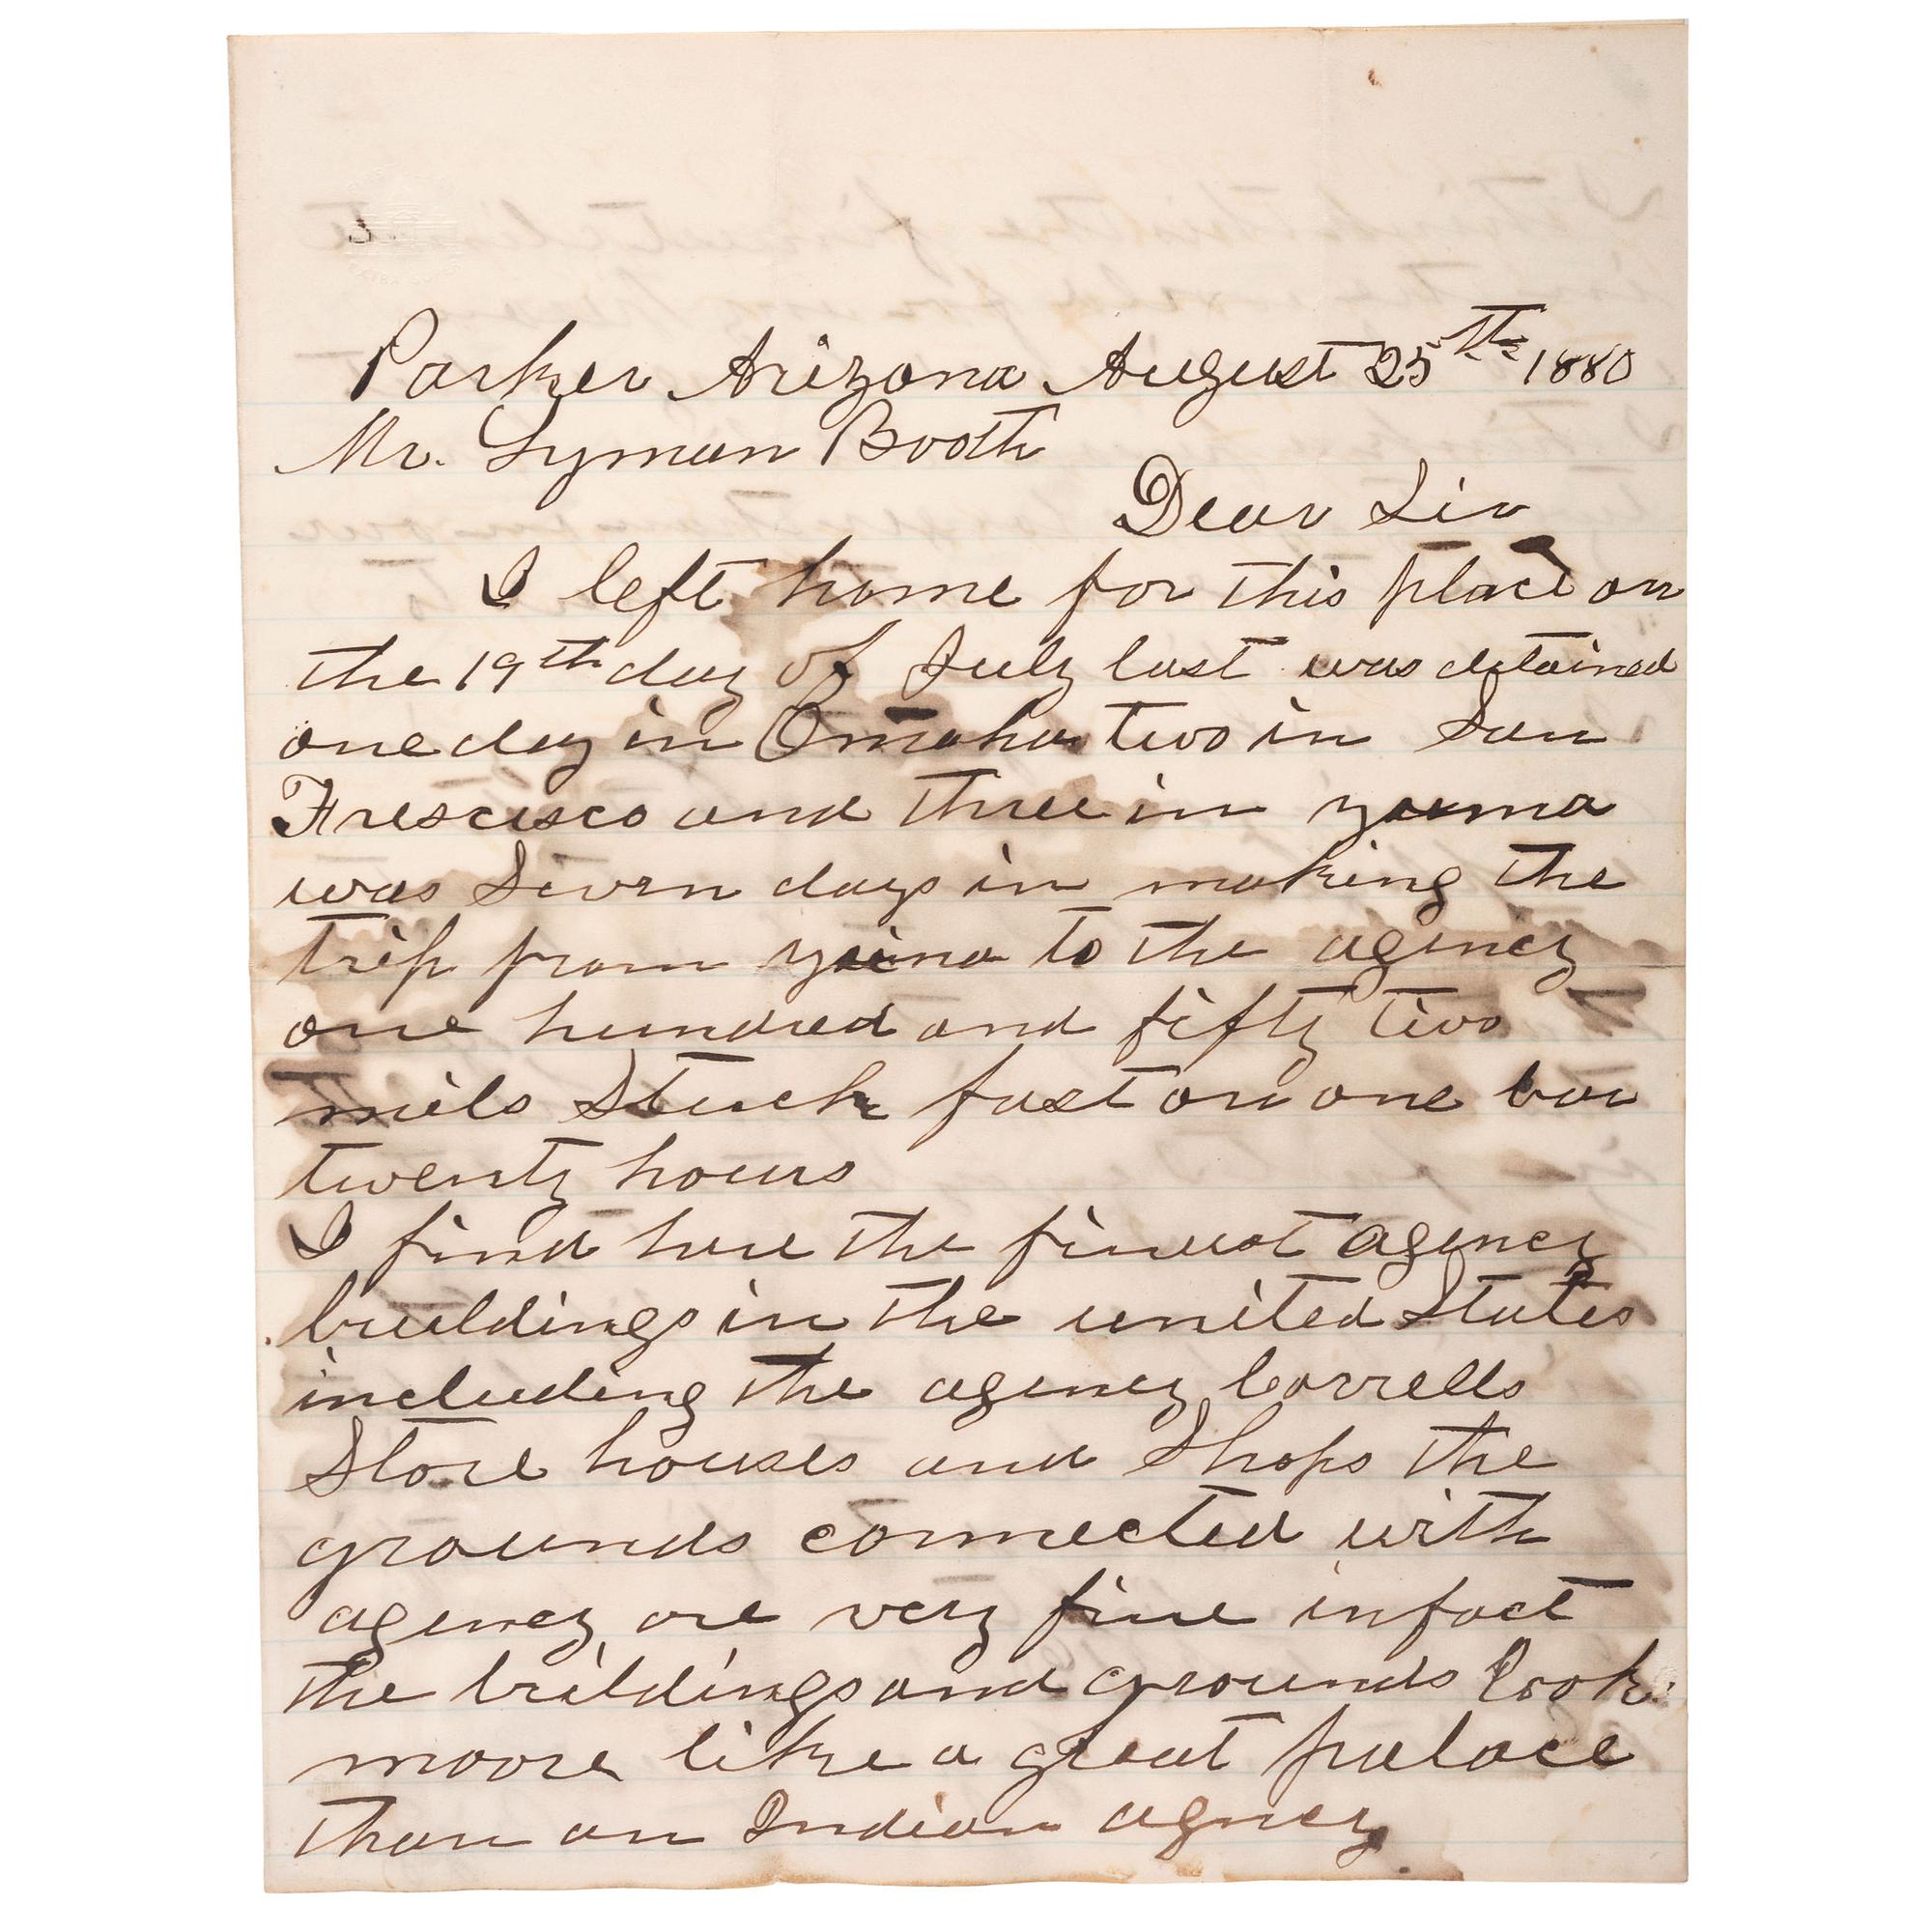 Parker Arizona August 25th 1880
Mr. Lyman Booth
Dear Sir
I left home for this place on
the 19th day of July last was detained
one day in Omaha two in San
Frescisco and three in yuma
was Seven days in making the
trip from yuma to the agency
one hundred and fifty two
miels Stuck fast on one bar
twenty hours
I find here the finest agency
buildings in the united States
including the agency corrells
Store houses and Shops the
grounds connected with
agency are very fine in fact
the buildings and grounds look
moore like a great palace
than an Indian agency